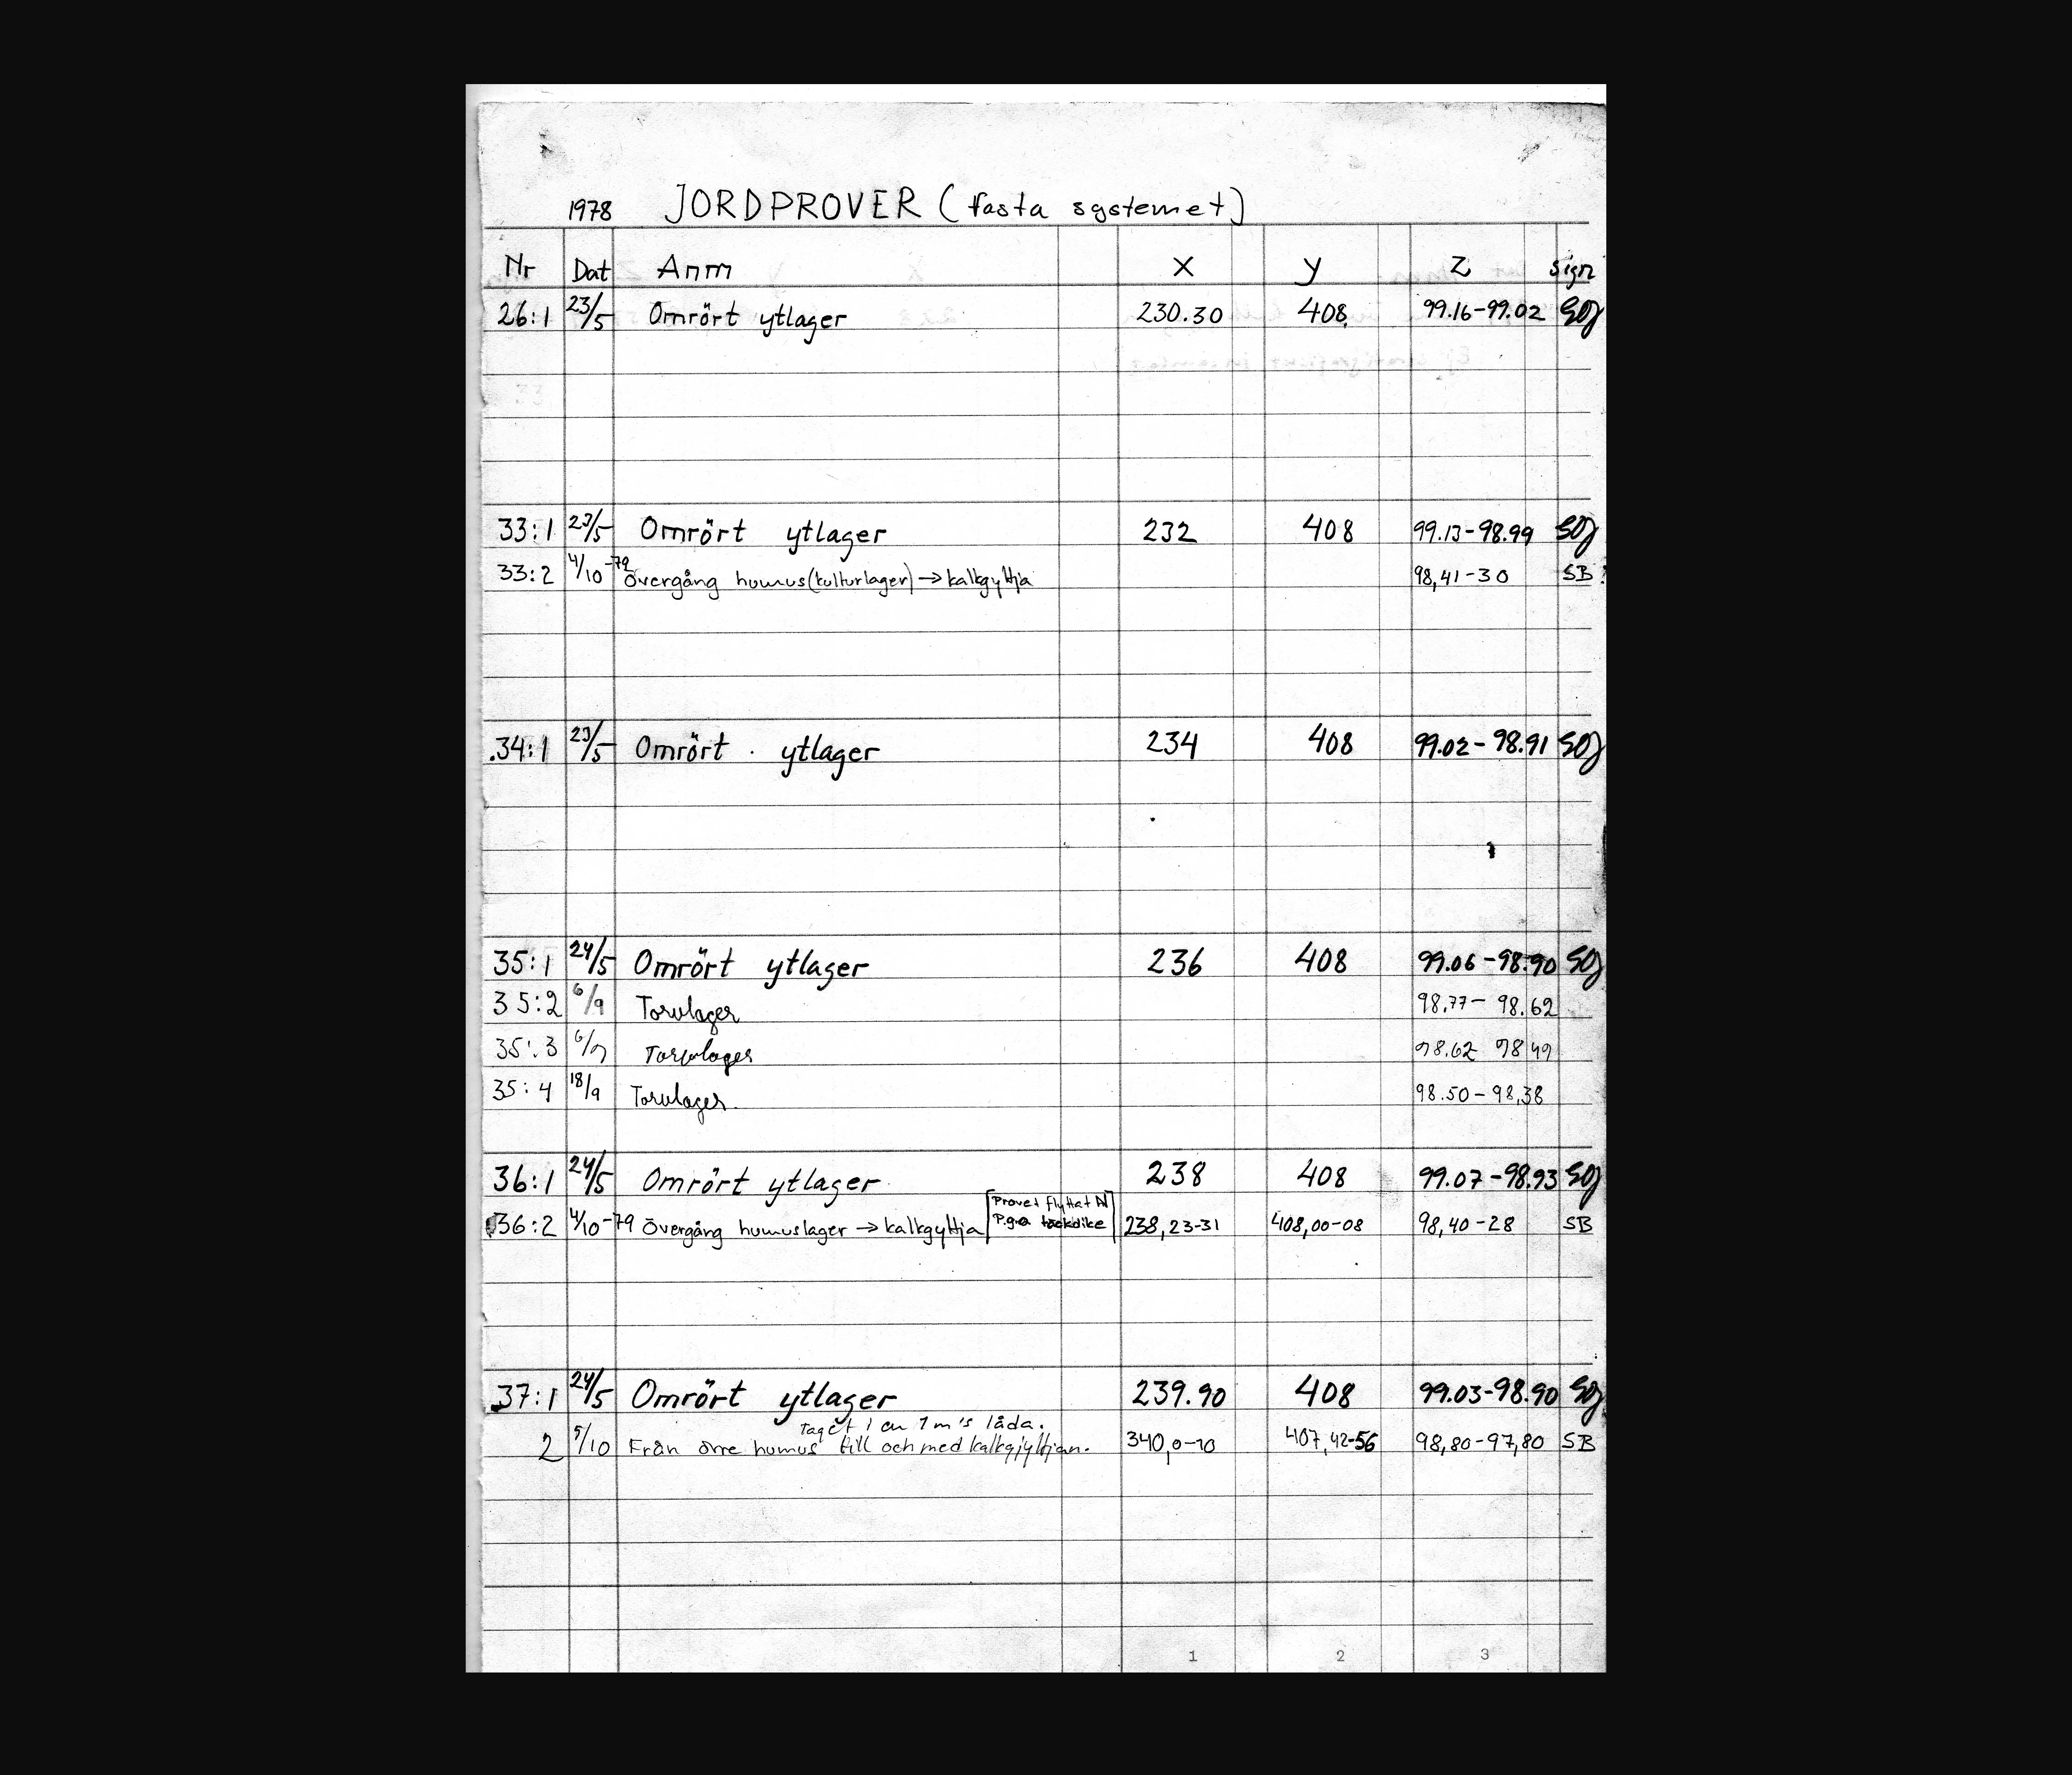 1978 JORDPROVER (fasta systemet)
Nr Dat Anm X y Z Sign
26:1 23/5 Omrört ytlager 230.30 408 99.16-99.02 SOJ
33:1 23/5 Omrört ytlager 232 408 99.13-98.99 SOJ
33:2 4/10-79 Övergång humus(kulturlager) → kalkgyttja 98,41-30 SB
34:1 23/5 Omrört ytlager 234 408 99.02-98.91 SOJ
35:1 24/5 Omrört ytlager 236 408 99.06-98.90 SOJ
35:2 6/9 Torvlager 98.77-98.62
35:3 6/9 Torvlager 98.62 98 49
35:4 18/9 Torvlager. 98.50-98,38
36:1 24/5 Omrört ytlager 238 408 99.07-98.93 SOJ
[Provet flyttat N]
36:2 4/10-79 Övergång humuslager → kalkgyttja P.g.a täckdike 238,23-31 408,00-08 98,40-28 SB
37:1 24/5 Omrört ytlager 239.90 408 99.03-98.90 SOJ
Taget i en 1m's låda.
2 5/10 Från övre humus till och med kalkgyttjan. 340,0-10 407,42-56 98,80-97,80 SB
1 2 3